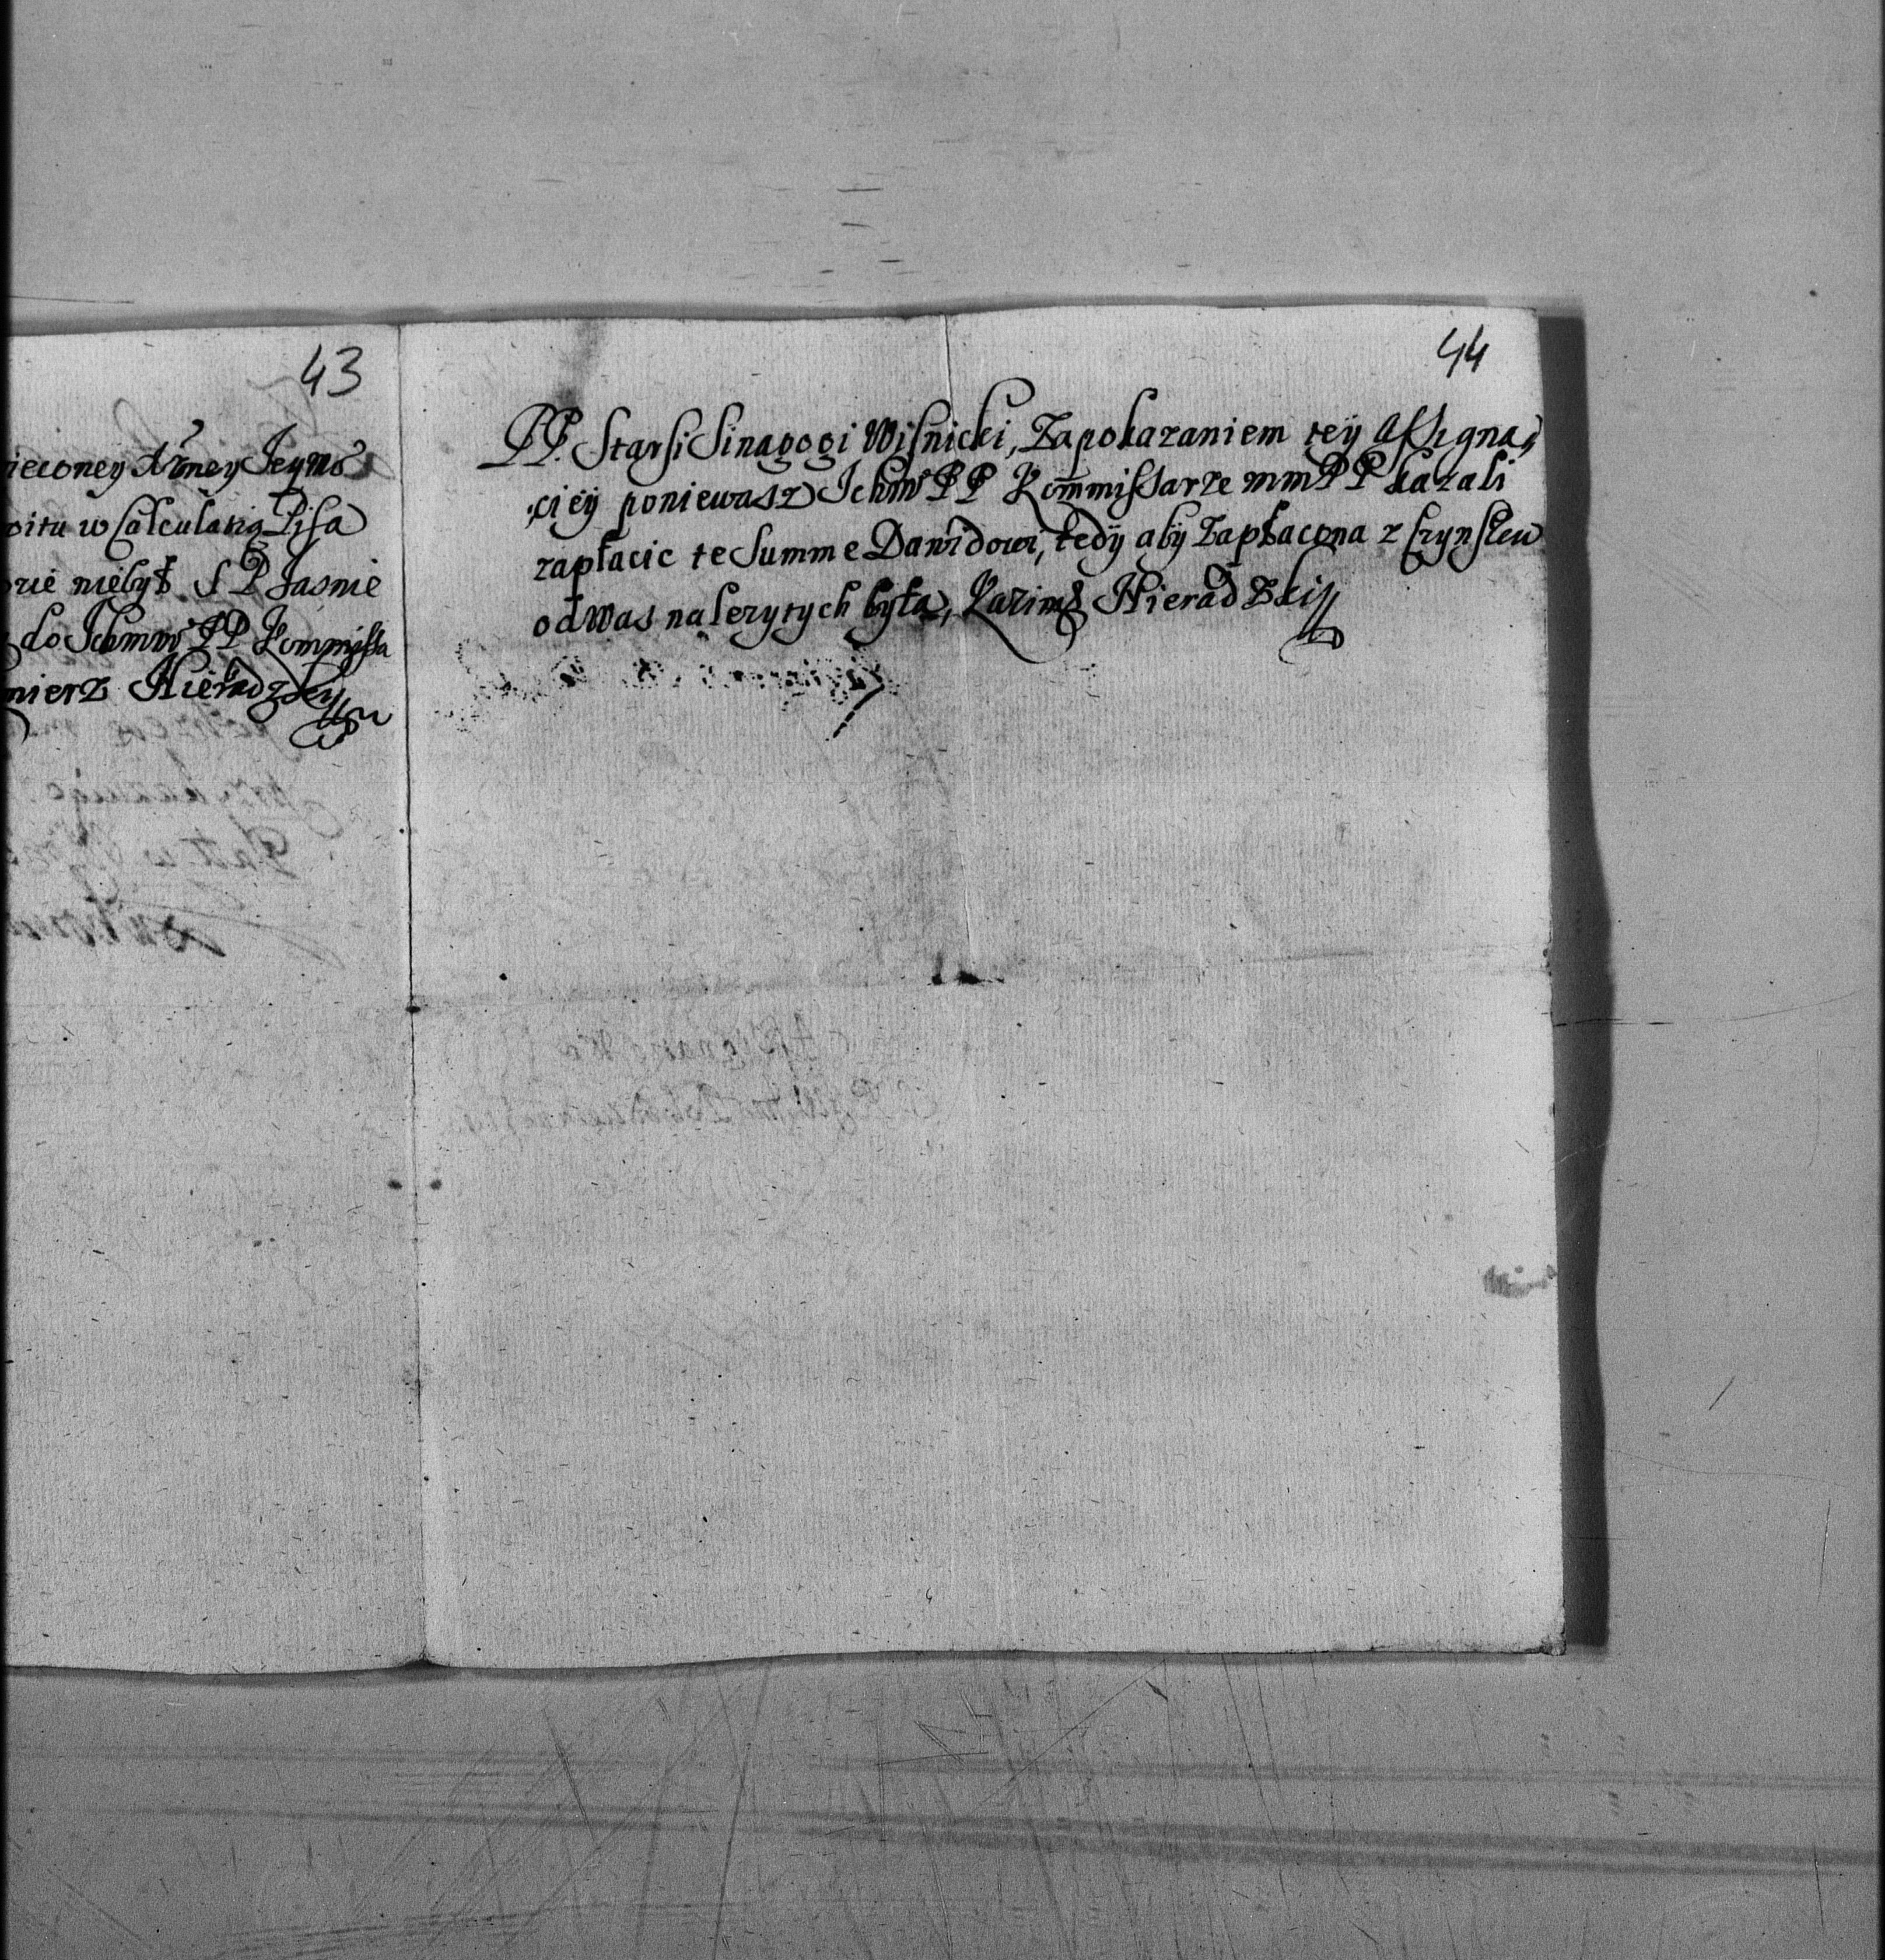 43
ieconey Jeymo
pitu w Calculatią Pisa
rie niebył S P Jasnie
do Ichmw PP Kommissa
mierz Hieradzky
44
PP. Starsi Sinagogi Wisnicki, Za pokazaniem teÿ Assigna,
ciÿ poniewasz Ichmw PP Kommissarze mm PP kazali
zapłacic te Summe Dawidowi, tedÿ abÿ Zapłacona z czynszew
od was nalezytych była, Kazimr Hieradzki